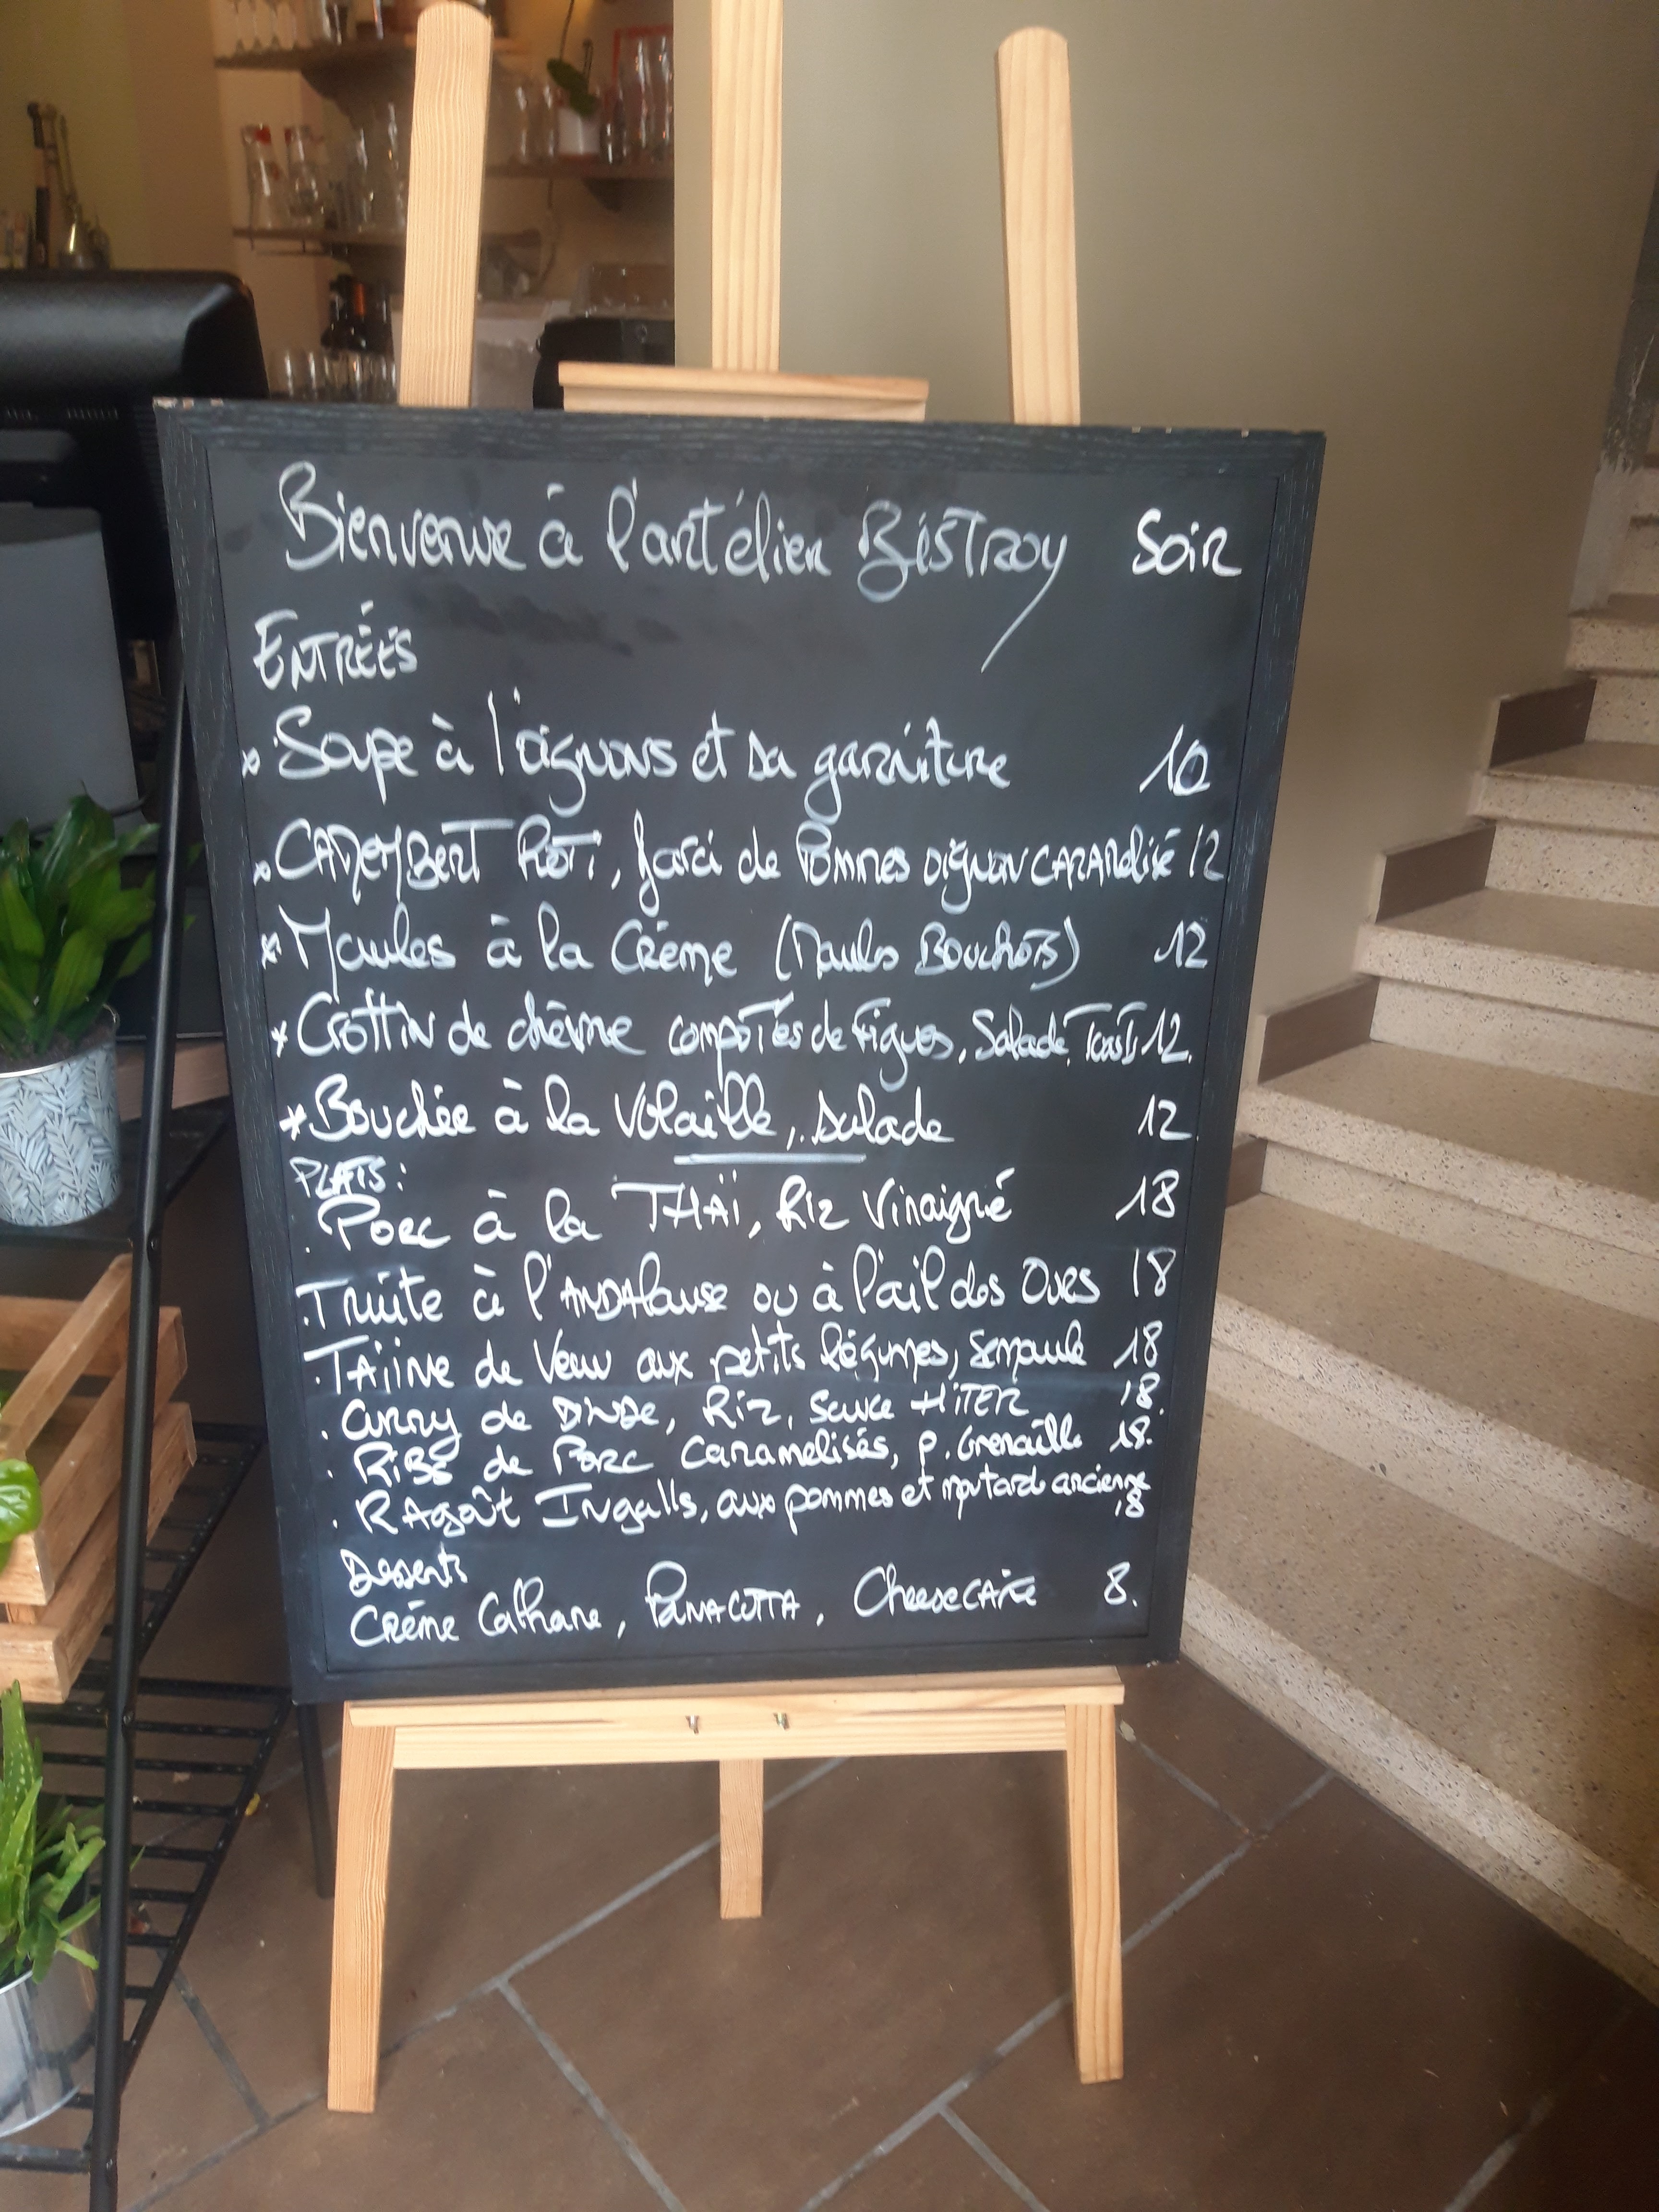 Bienvenue à l'artélier BISTROY Soir
ENTRÉÉS
× Soupe à l'oignons et sa garniture 10
× CAMEMBERT RôTi, farci de POMMES oignon CARAMélisé 12
× Moules à la Crème (Moules BouchoTs) 12
× CroTTiN de chèvre compoTées de Figues, Salade, ToasTs 12.
× Bouchée à la Volaille, salade 12.
PLATS:
. Porc à la THAÏ, Riz Vinaigré 18
. Truite à l'ANDAlouse ou à l'ail des Ours 18
. TAjine de Veau aux petits légumes, semoule 18
. Curry de DiNDe, Riz, Sauce HiTER 18.
. RiBS de Porc Caramelisés, p. Grenaille 18.
. RAgoût Ingalls, aux pommes et moutarde ancienne
18
Desserts
Crème Cathane, PANACOTTA, CheeseCAKe 8.